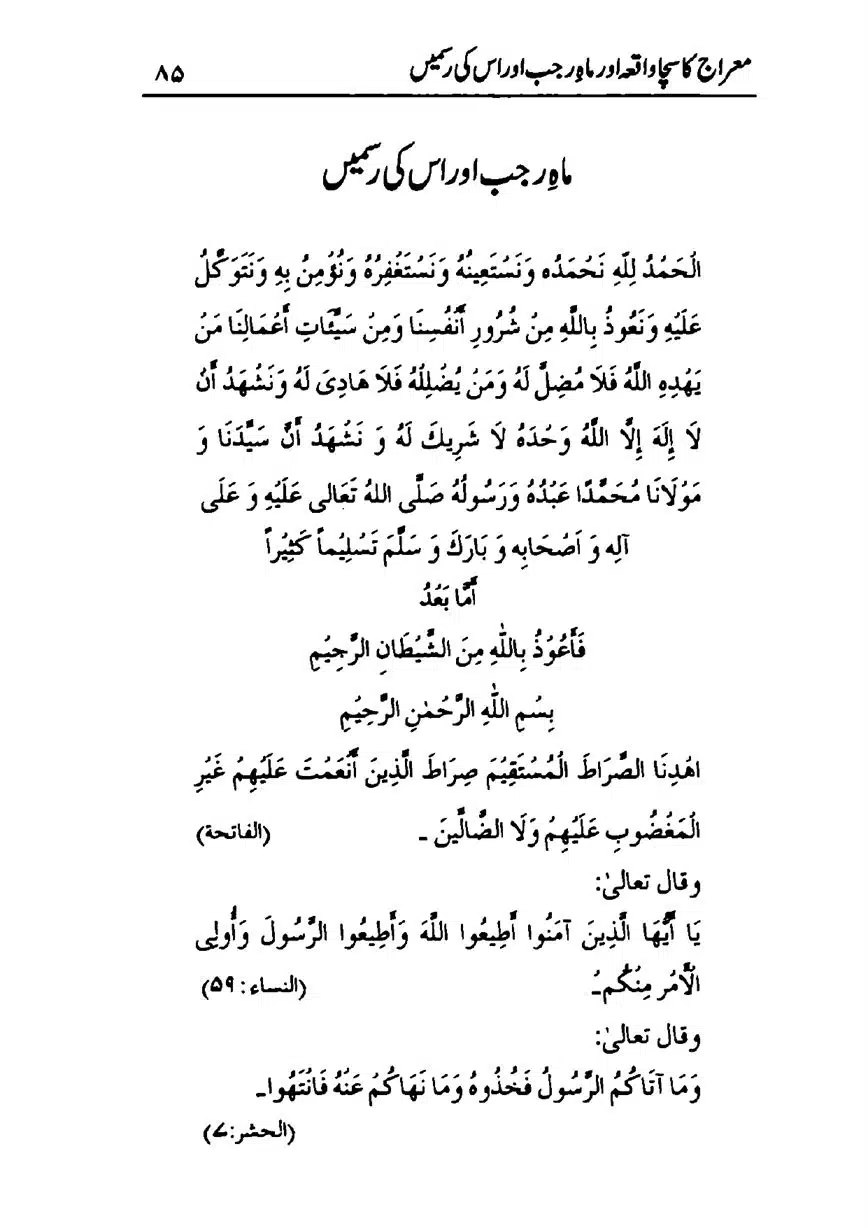 معراج کا سچا واقعہ اور ماہِ رجب اور اس کی رسمیں ۸۵
ماہِ رجب اور اس کی رسمیں
الْحَمْدُ لِلّٰهِ نَحْمَدُه وَنَسْتَعِينُهُ وَنَسْتَغْفِرُهُ وَنُؤْمِنُ بِهِ وَنَتَوَكَّلُ
عَلَيْهِ وَنَعُوذُ بِاللَّهِ مِنْ شُرُورِ أَنْفُسِنَا وَمِنْ سَيِّئَاتِ أَعْمَالِنَا مَنْ
يَهْدِهِ اللَّهُ فَلَا مُضِلَّ لَهُ وَمَنْ يُضْلِلْهُ فَلَا هَادِىَ لَهُ وَنَشْهَدُ أَنْ
لَا إِلَهَ إِلَّا اللَّهُ وَحْدَهُ لَا شَرِيكَ لَهُ وَ نَشْهَدُ أَنَّ سَيِّدَنَا وَ
مَوْلَانَا مُحَمَّدًا عَبْدُهُ وَرَسُولُهُ صَلَّى اللهُ تَعَالى عَلَيْهِ وَ عَلَى
آلِه وَ اَصْحَابِه وَ بَارَكَ وَ سَلَّمَ تَسْلِيْماً كَثِيْراً
أَمَّا بَعْدُ
فَأَعُوْذُ بِاللّٰهِ مِنَ الشَّيْطَانِ الرَّجِيْمِ
بِسْمِ اللّٰهِ الرَّحْمٰنِ الرَّحِيْمِ
اهْدِنَا الصِّرَاطَ الْمُسْتَقِيْمَ صِرَاطَ الَّذِينَ أَنْعَمْتَ عَلَيْهِمْ غَيْرِ
الْمَغْضُوبِ عَلَيْهِمْ وَلَا الضَّالِّينَ ۔ (الفاتحة)
وقال تعالىٰ:
يَا أَيُّهَا الَّذِينَ آمَنُوا أَطِيعُوا اللَّهَ وَأَطِيعُوا الرَّسُولَ وَأُولِى
الْأَمْرِ مِنْكُمْ۔ (النساء:۵۹)
وقال تعالىٰ:
وَمَا آتَاكُمُ الرَّسُولُ فَخُذُوهُ وَمَا نَهَاكُمْ عَنْهُ فَانْتَهُوا۔
(الحشر:۷)